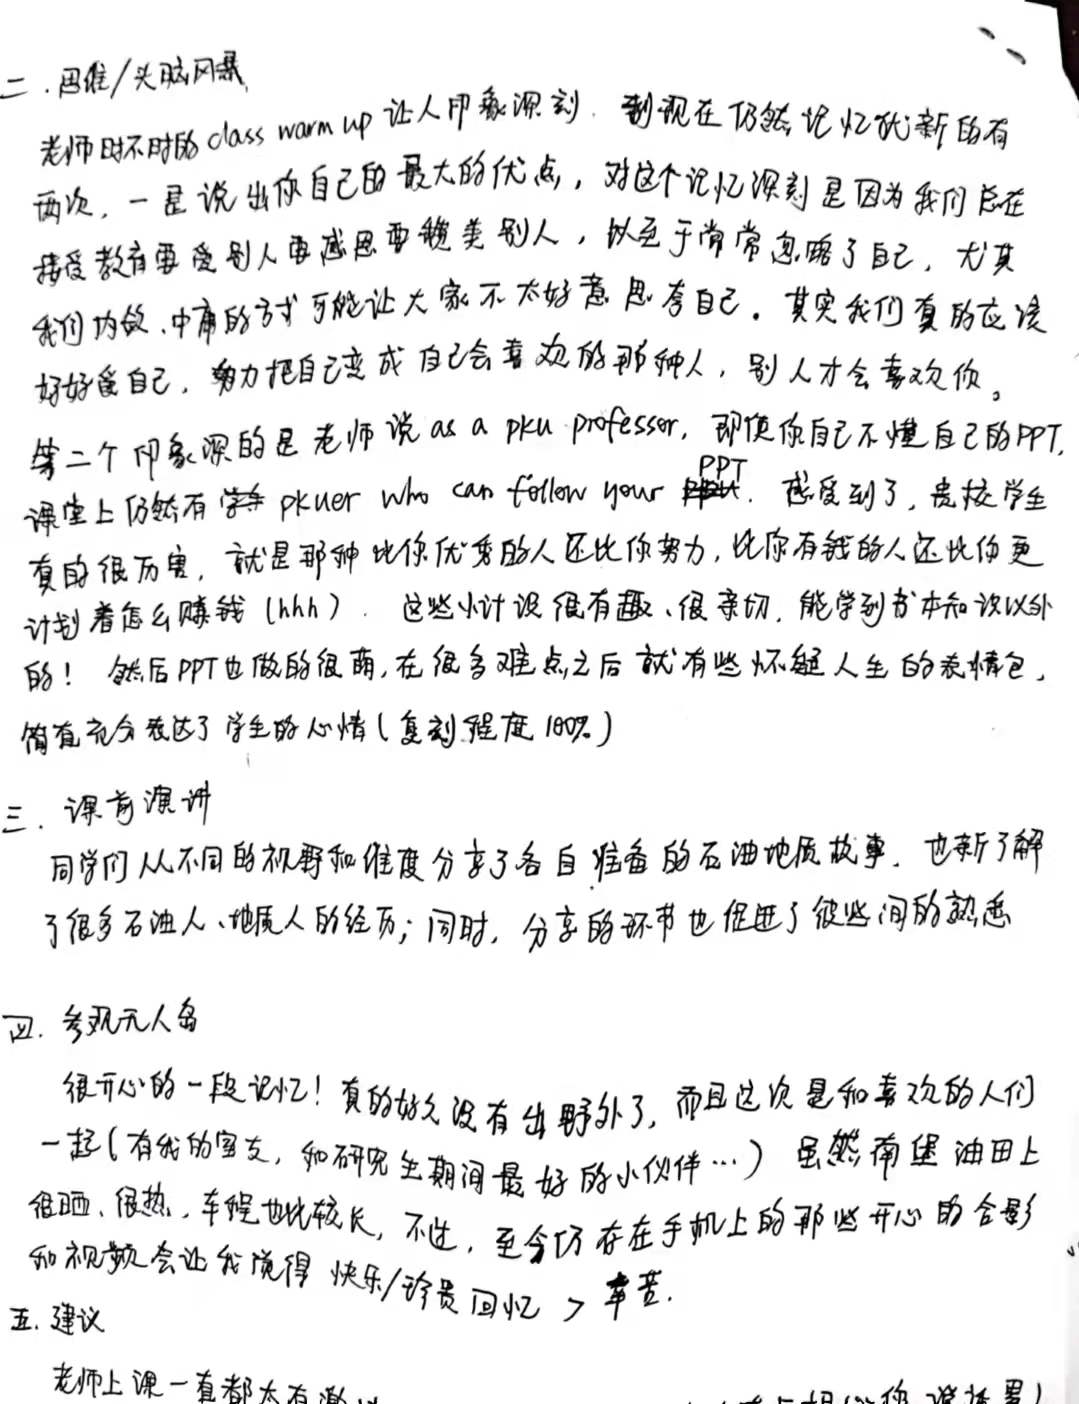 二．思维/头脑风暴
老师时不时的class warm up 让人印象深刻．到现在仍然记忆犹新的有
两次，一是说出你自己的最大的优点，对这个记忆深刻是因为我们总在
接受教育要爱别人要感恩要赞美别人，以至于常常忽略了自己，尤其
我们内敛、中庸的方式可能让大家不太好意思夸自己。其实我们真的应该
好好爱自己，努力把自己变成自己会喜欢的那种人，别人才会喜欢你。
第二个印象深的是老师说 as a pku professor, 即使你自己不懂自己的PPT,
课堂上仍然有 pkuer who can follow your PPT. 感受到了，贵校学生
真的很厉害，就是那种比你优秀的人还比你努力，比你有钱的人还比你更
计划着怎么赚钱 (hhh) . 这些小计设很有趣、很亲切，能学到书本知识以外
的！然后PPT也做的很萌，在很多难点之后就有些怀疑人生的表情包，
简直充分表达了学生的心情 (复刻程度 100%)
三．课前演讲
同学们从不同的视野和维度分享了各自准备的石油地质故事．也新了解
了很多石油人、地质人的经历；同时，分享的环节也促进了彼此间的熟悉
四．参观无人岛
很开心的一段记忆！真的好久没有出野外了，而且这次是和喜欢的人们
一起 (有我的室友，和研究生期间最好的小伙伴…) 虽然南堡油田上
很晒、很热、车程也比较长，不过，至今仍存在手机上的那些开心的合影
和视频会让我觉得 快乐/珍贵回忆 > 辛苦．
五．建议
老师上课一直都太有激